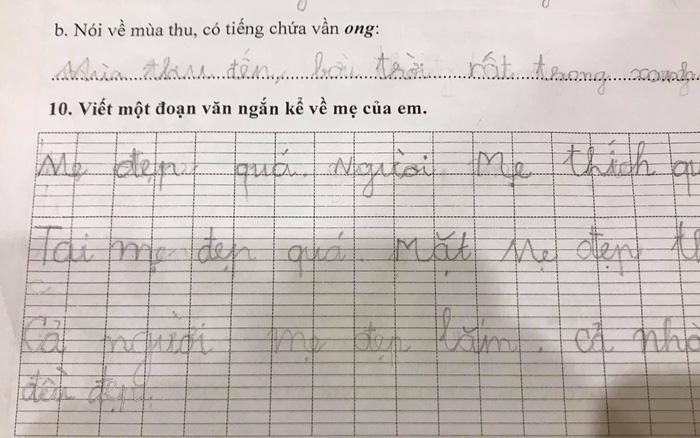 b. Nói về mùa thu, có tiếng chứa vần ong:
Mùa thu đến, bầu trời rất trong xong
10. Viết một đoạn văn ngắn kể về mẹ của em.
Mẹ đẹp quá. Người Mẹ thích qu
Tai mẹ đẹp quá. Mặt Mẹ đẹp
Cả người mẹ đẹp lắm. cả nhà
đền đẹp.